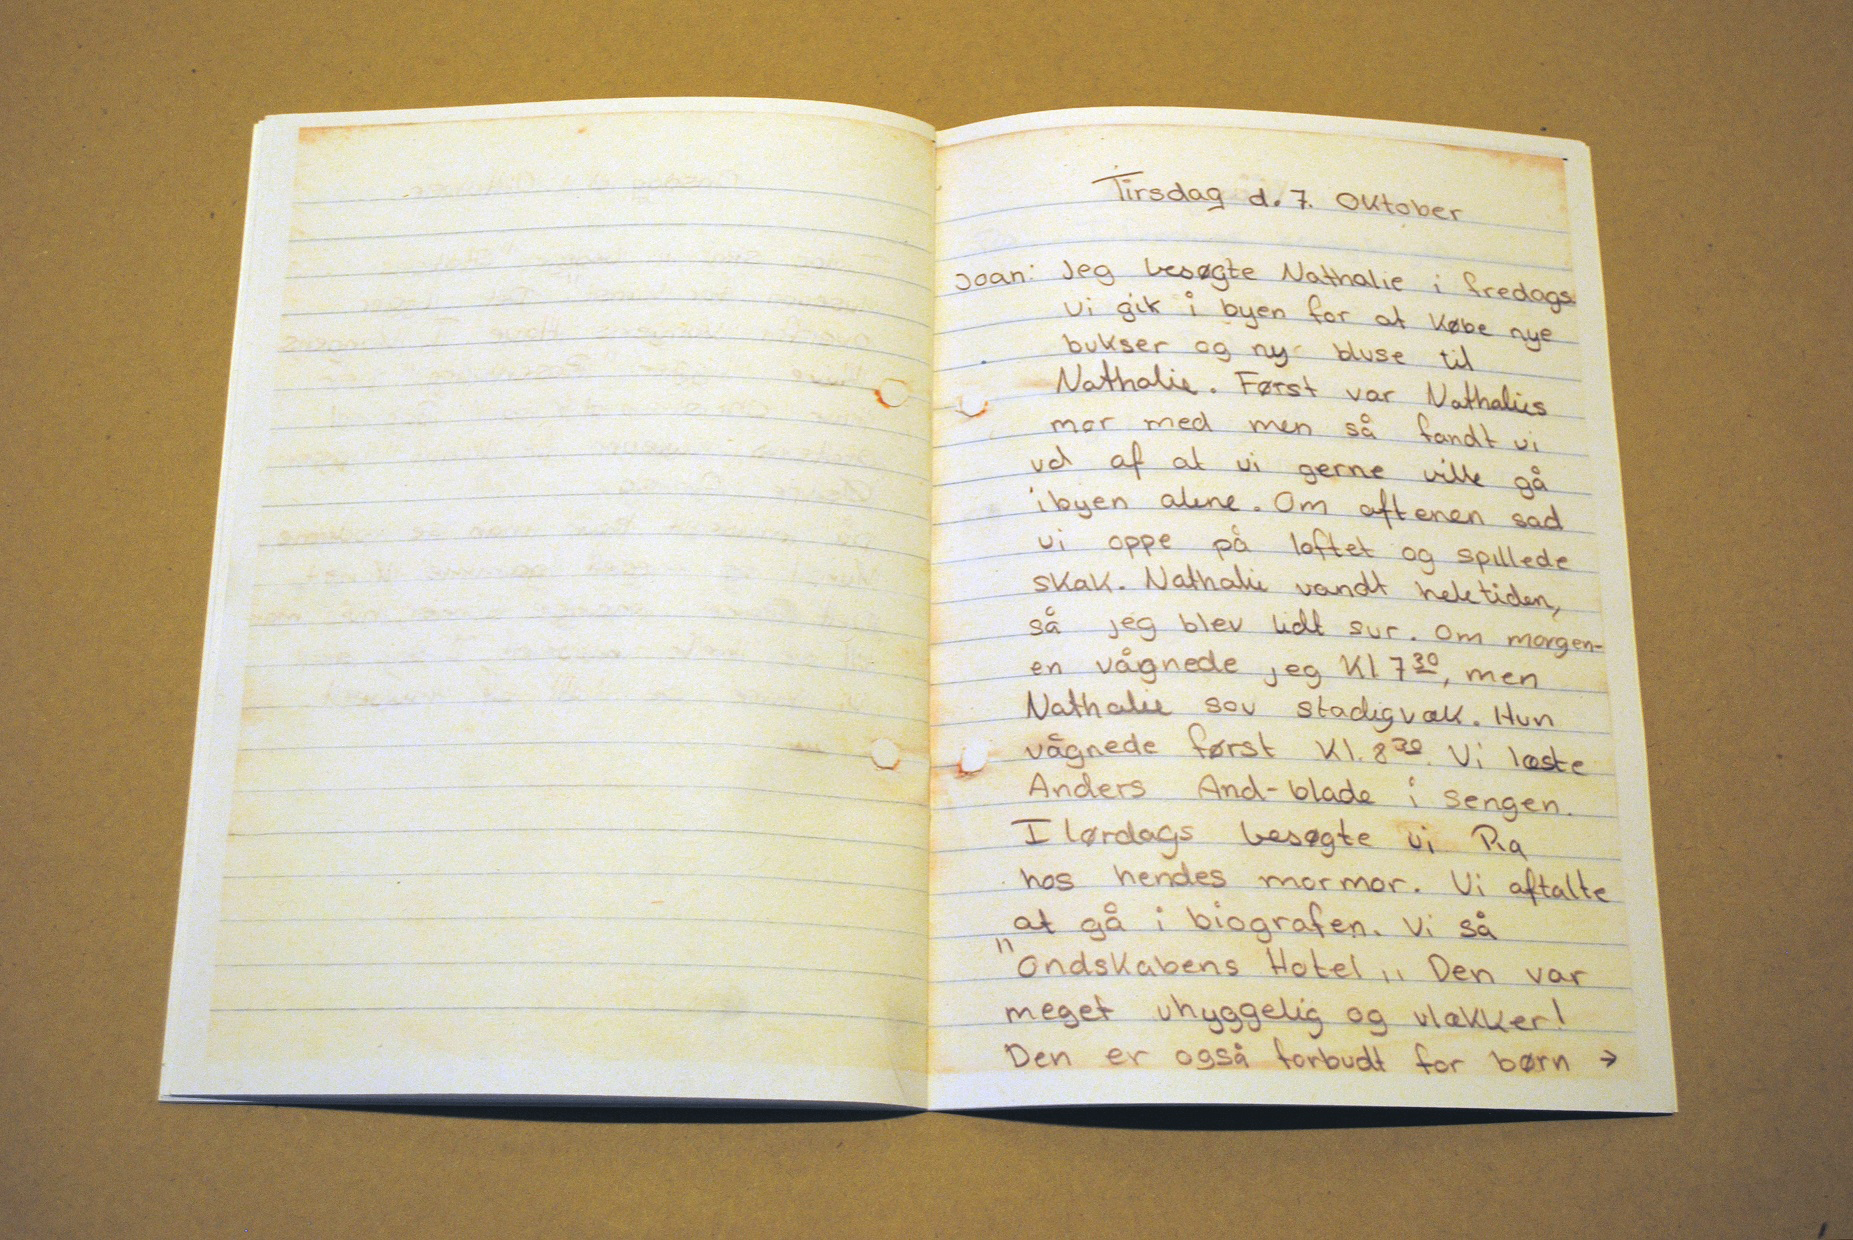 Tirsdag d. 7. Oktober
Joan: Jeg besøgte Nathalie i fredags
vi gik i byen for at købe nye
bukser og ny bluse til
Nathalie. Først var Nathalies
mor med men så fandt vi
ud af at vi gerne ville gå
ibyen alene. Om aftenen sad
vi oppe på loftet og spillede
skak. Nathalie vandt heletiden,
så jeg blev lidt sur. Om morgen-
en vågnede jeg Kl 7 30, men
Nathalie sov stadigvæk. Hun
vågnede først Kl. 8 30. Vi læste
Anders And-blade i sengen.
I lørdags besøgte vi Pia
hos hendes mormor. Vi aftalte
at gå i biografen. Vi så
"Ondskabens Hotel„ Den var
meget uhyggelig og ulækker!
Den er også forbudt for børn →